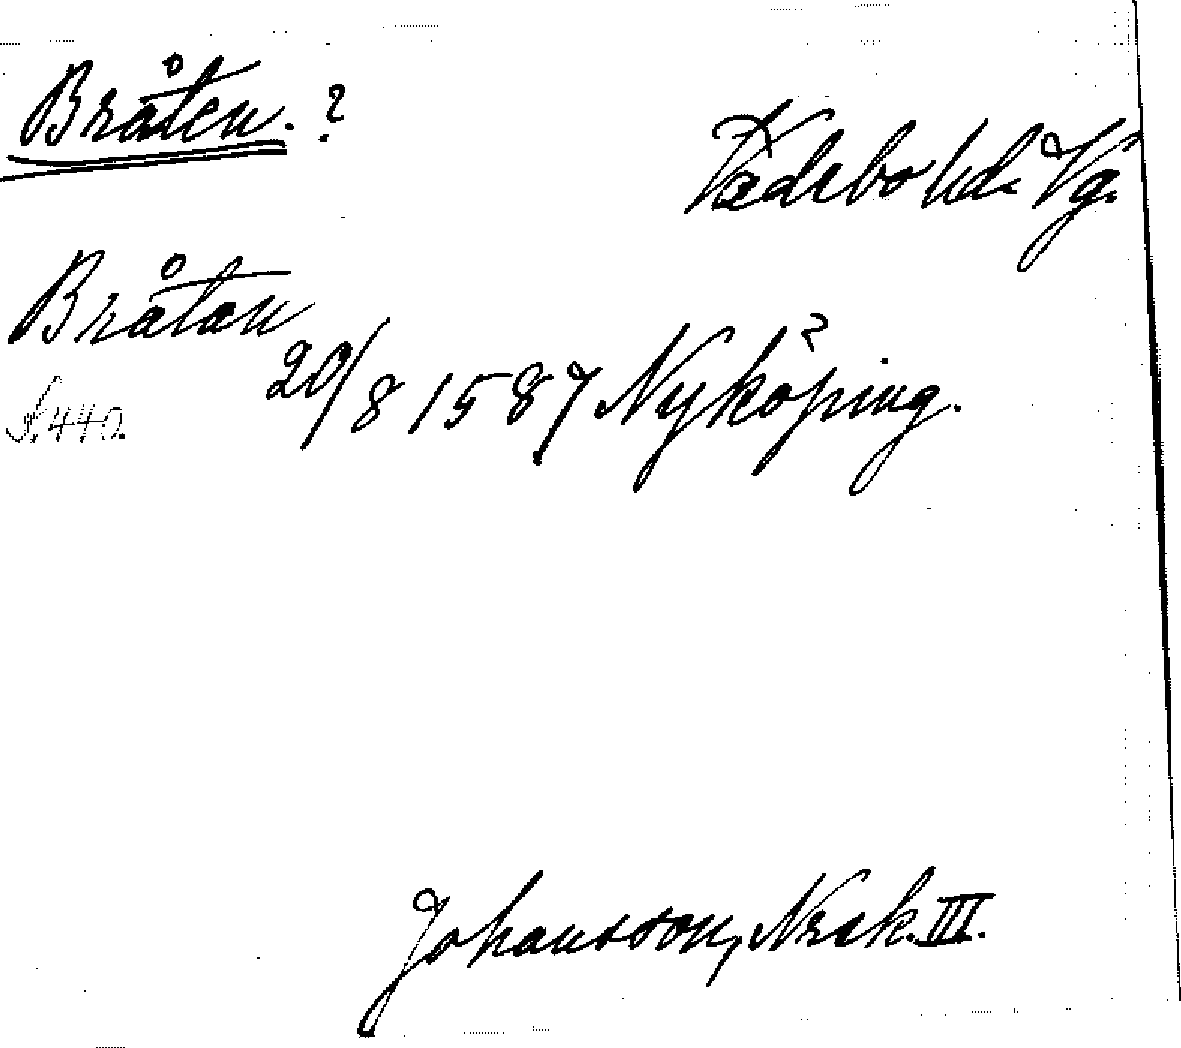 Bråten. ?
Vadsbo hd. Vg.
Bråtan
20/8 1587 Nyköping.
S. 440.
Johansson, Nrsk. III.